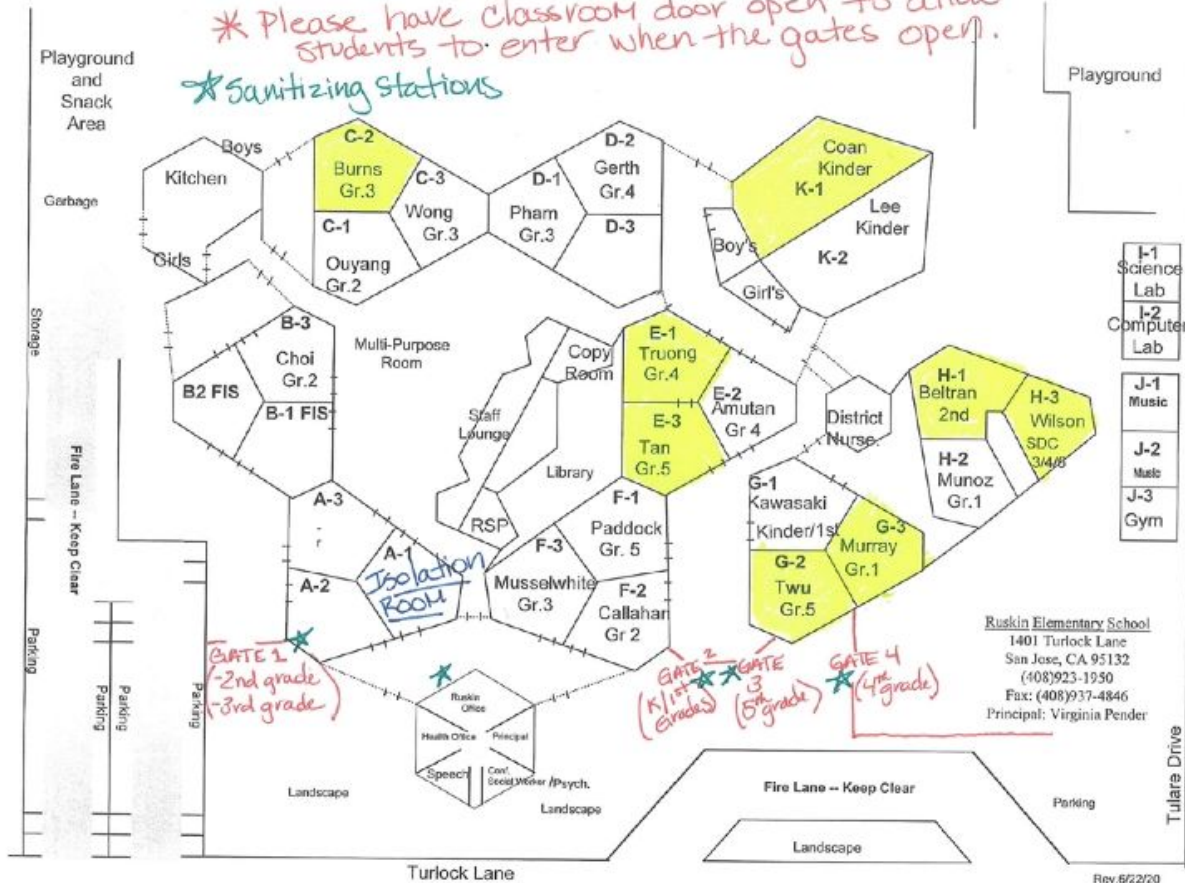 * Please have classroom door open to allow
students to enter when the gates open.
*Sanitizing stations
Playground
and
Snack
Area
Playground
Garbage
Storage
Kitchen
Boys
Girls
C-2
Burns
Gr.3
C-3
Wong
Gr.3
C-1
Ouyang
Gr.2
D-1
Pham
Gr.3
D-2
Gerth
Gr.4
D-3
Coan
Kinder
K-1
Lee
Kinder
K-2
Boy's
Girl's
I-1
Science
Lab
I-2
Computer
Lab
J-1
Music
J-2
Music
J-3
Gym
B-3
Choi
Gr.2
B2 FIS
B-1 FIS
Multi-Purpose
Room
Copy
Room
Staff
Lounge
Library
RSP
E-1
Truong
Gr.4
E-2
Amutan
Gr 4
E-3
Tan
Gr.5
District
Nurse.
H-1
Beltran
2nd
H-3
Wilson
SDC
H-2
Munoz
Gr.1
A-3
A-2
A-1
Isolation
ROOM
F-1
Paddock
Gr. 5
F-3
Musselwhite
Gr.3
F-2
Callahan
Gr 2
G-1
Kawasaki
Kinder/1st
G-3
Murray
Gr.1
G-2
Twu
Gr.5
Fire Lane -- Keep Clear
Parking
Parking
Parking
Parking
GATE 1
(-2nd grade)
(-3rd grade)
GATE 2
(K/1st
Grades)
GATE
3
(5th grade)
GATE 4
(4th grade)
Ruskin
Office
Health Office
Principal
Speech
Conf.
Social Worker /Psych.
Landscape
Landscape
Ruskin Elementary School
1401 Turlock Lane
San Jose, CA 95132
(408)923-1950
Fax: (408)937-4846
Principal: Virginia Pender
Fire Lane -- Keep Clear
Landscape
Parking
Tulare Drive
Turlock Lane
Rev.6/22/20